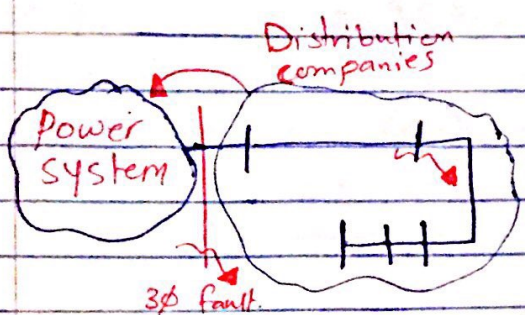 Distribution
companies
Power
system
3ø fault.